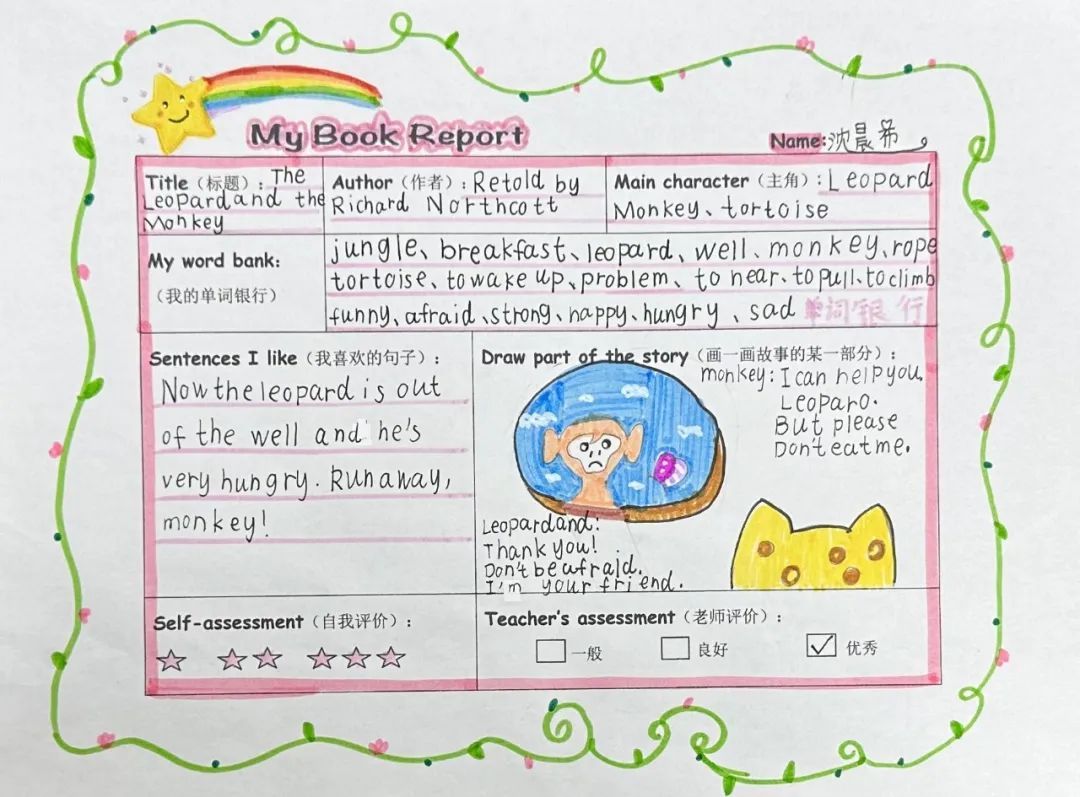 My Book Report
Name:沈晨希
Title（标题）: The
Leopard and the
Monkey
Author（作者）: Retold by
Richard Northcott
Main character（主角）: Leopard
Monkey、tortoise
My word bank:
（我的单词银行）
jungle、breakfast、leopard、well、monkey、rope
tortoise、to wake up、problem、to near、to pull、to climb
funny、afraid、strong、happy、hungry、sad 单词银行
Sentences I like（我喜欢的句子）:
Now the leopard is out
of the well and he's
very hungry. Run away,
monkey!
Draw part of the story（画一画故事的某一部分）:
monkey: I can help you,
Leoparo.
But please
Don't eat me.
Leopardand:
Thank you!
Don't be afraid.
I'm your friend.
Self-assessment（自我评价）:
Teacher's assessment（老师评价）:
一般
良好
优秀